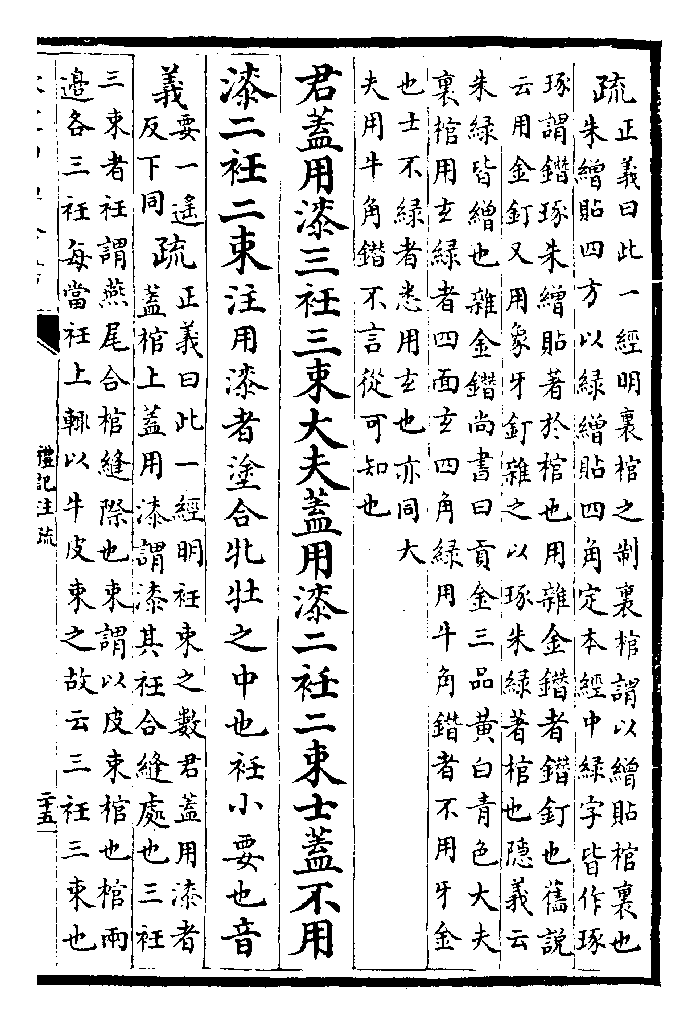 疏正義曰此一經明裏棺之制裏棺謂以繒貼棺裏也
朱繒貼四方以緑繒貼四角定本經中緑字皆作琢
琢謂鐕琢朱繒貼著於棺也用雜金鐕者鐕釘也舊說
云用金釘又用象牙釘雜之以琢朱緑著棺也隱義云
朱緑皆繒也雜金鐕尚書曰貢金三品黃白青色大夫
裏棺用玄緑者四面玄四角緑用牛角鐕者不用牙金
也士不緑者悉用玄也亦同大
夫用牛角鐕不言從可知也
君蓋用漆三衽三束大夫蓋用漆二衽二束士蓋不用
漆二衽二束注用漆者塗合牝牡之中也衽小要也音
義要一遙
反下同疏正義曰此一經明衽束之數君蓋用漆者
蓋棺上蓋用漆謂漆其衽合縫處也三衽
三束者衽謂燕尾合棺縫際也束謂以皮束棺也棺兩
邉各三衽每當衽上輒以牛皮束之故云三衽三束也
禮記注疏
二十五